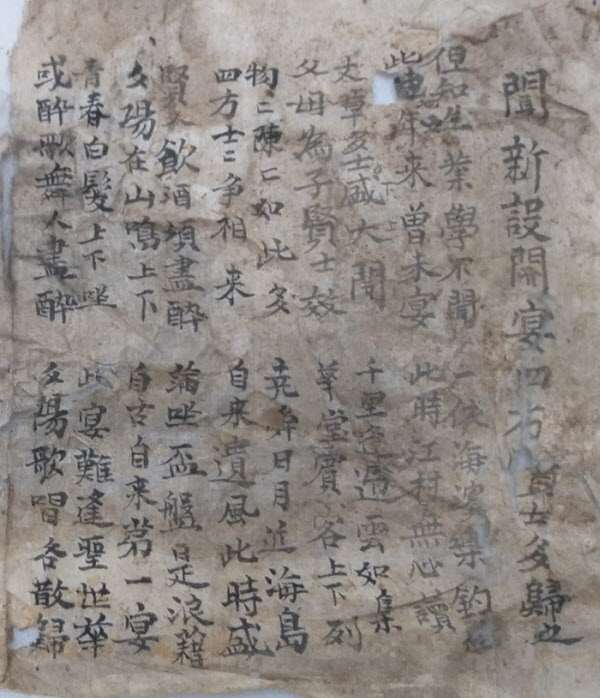 聞新設開宴四方士多歸之
但知生業學不聞 一依海濱樂釣
此年来曾未宴 此時江村無心讀
文章多士盛大聞 千里逢迎雲如集
父母為子賢士效 華堂賓客上下列
物二陳二如此多 堯舜日月近海島
四方士二爭相来 自来遺風此時盛
賢人飲酒須盡醉 滿坐盃盤是浪藉
夕陽在山鳴上下 自古自来第一宴
青春白髮上下坐 此宴難逢聖世華
或醉歌舞人盡醉 夕陽歌唱各散歸